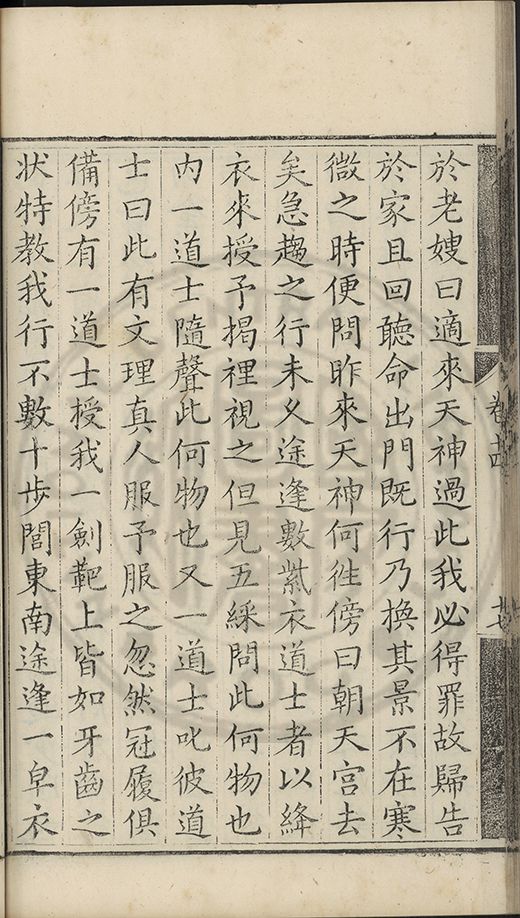 於老嫂曰適來天神過此我必得罪故歸告
於家且回聽命出門既行乃換其景不在寒
微之時便問昨來天神何徃傍曰朝天宮去
矣急趨之行未久途逢數紫衣道士者以絳
衣來授予揭裡視之但見五綵問此何物也
內一道士隨聲此何物也又一道士叱彼道
士曰此有文理真人服予服之忽然冠履俱
備傍有一道士授我一劍靶上皆如牙齒之
狀特教我行不數十步間東南途逢一皁衣
卷十四